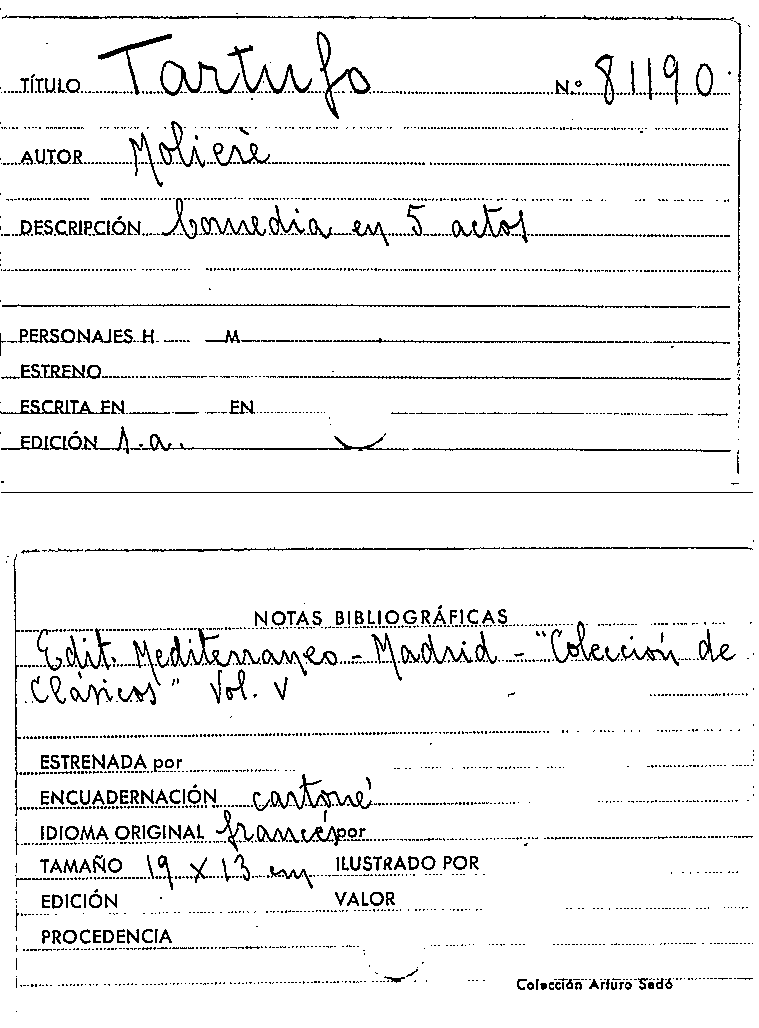 TÍTULO Tartufo N.º 81190
AUTOR Molierè
DESCRIPCIÓN Comedia en 5 actos
PERSONAJES H M
ESTRENO
ESCRITA EN EN
EDICIÓN s.a.
NOTAS BIBLIOGRÁFICAS
Edit. Mediterraneo - Madrid - "Colección de
Clásicos" Vol. V
ESTRENADA por
ENCUADERNACIÓN cartoné
IDIOMA ORIGINAL francés por
TAMAÑO 19 x 13 cm ILUSTRADO POR
EDICIÓN VALOR
PROCEDENCIA
Colección Arturo Sedó